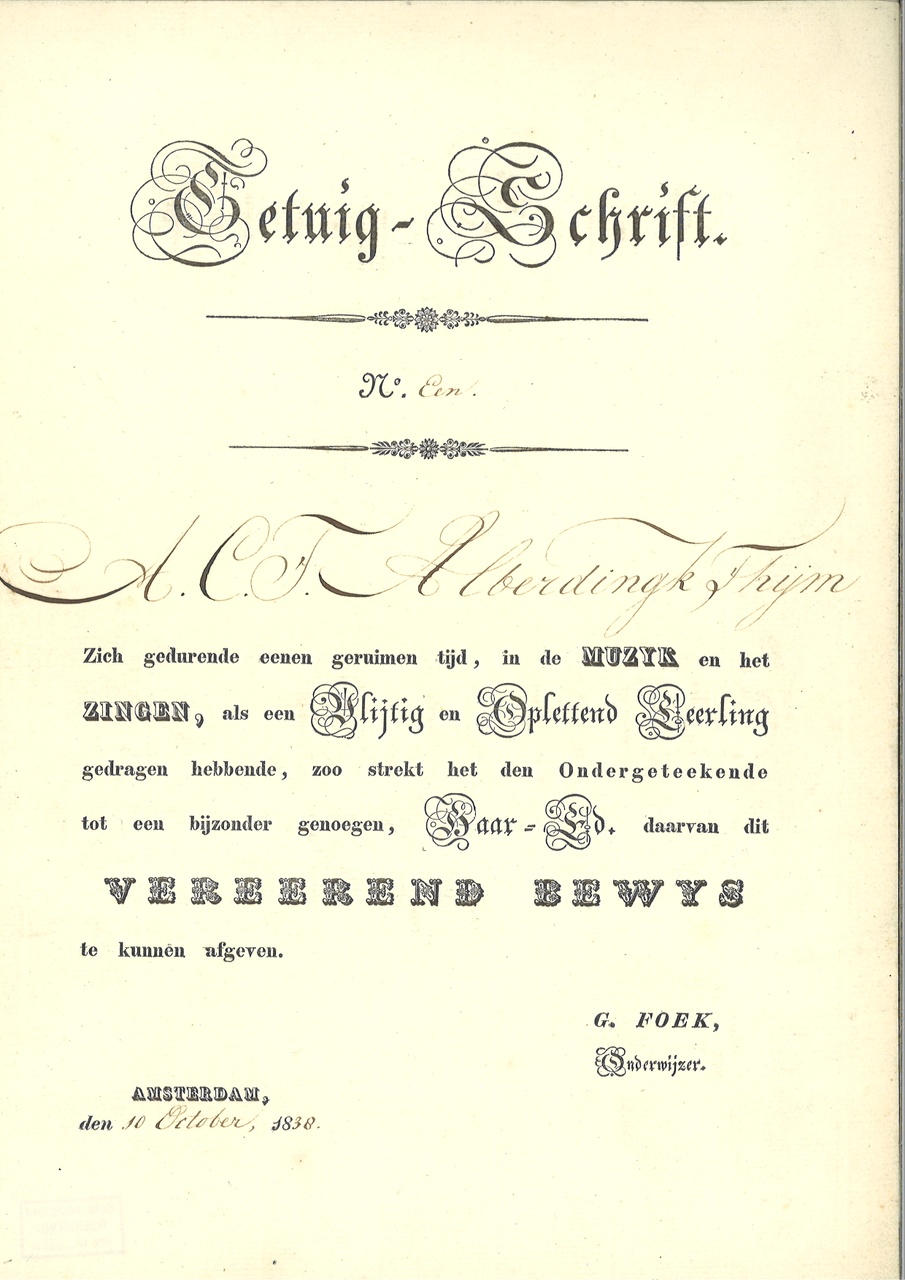 Getuig-Schrift.
No. Een.
A. C. T. Alberdingk Thijm
Zich gedurende eenen geruimen tijd, in de MUZYK en het
ZINGEN, als een Vlijtig en Oplettend Leerling
gedragen hebbende, zoo strekt het den Ondergeteekende
tot een bijzonder genoegen, Haar-Ed. daarvan dit
VEREEREND BEWYS
te kunnen afgeven.
G. FOEK,
Onderwijzer.
AMSTERDAM,
den 10 October, 1838.